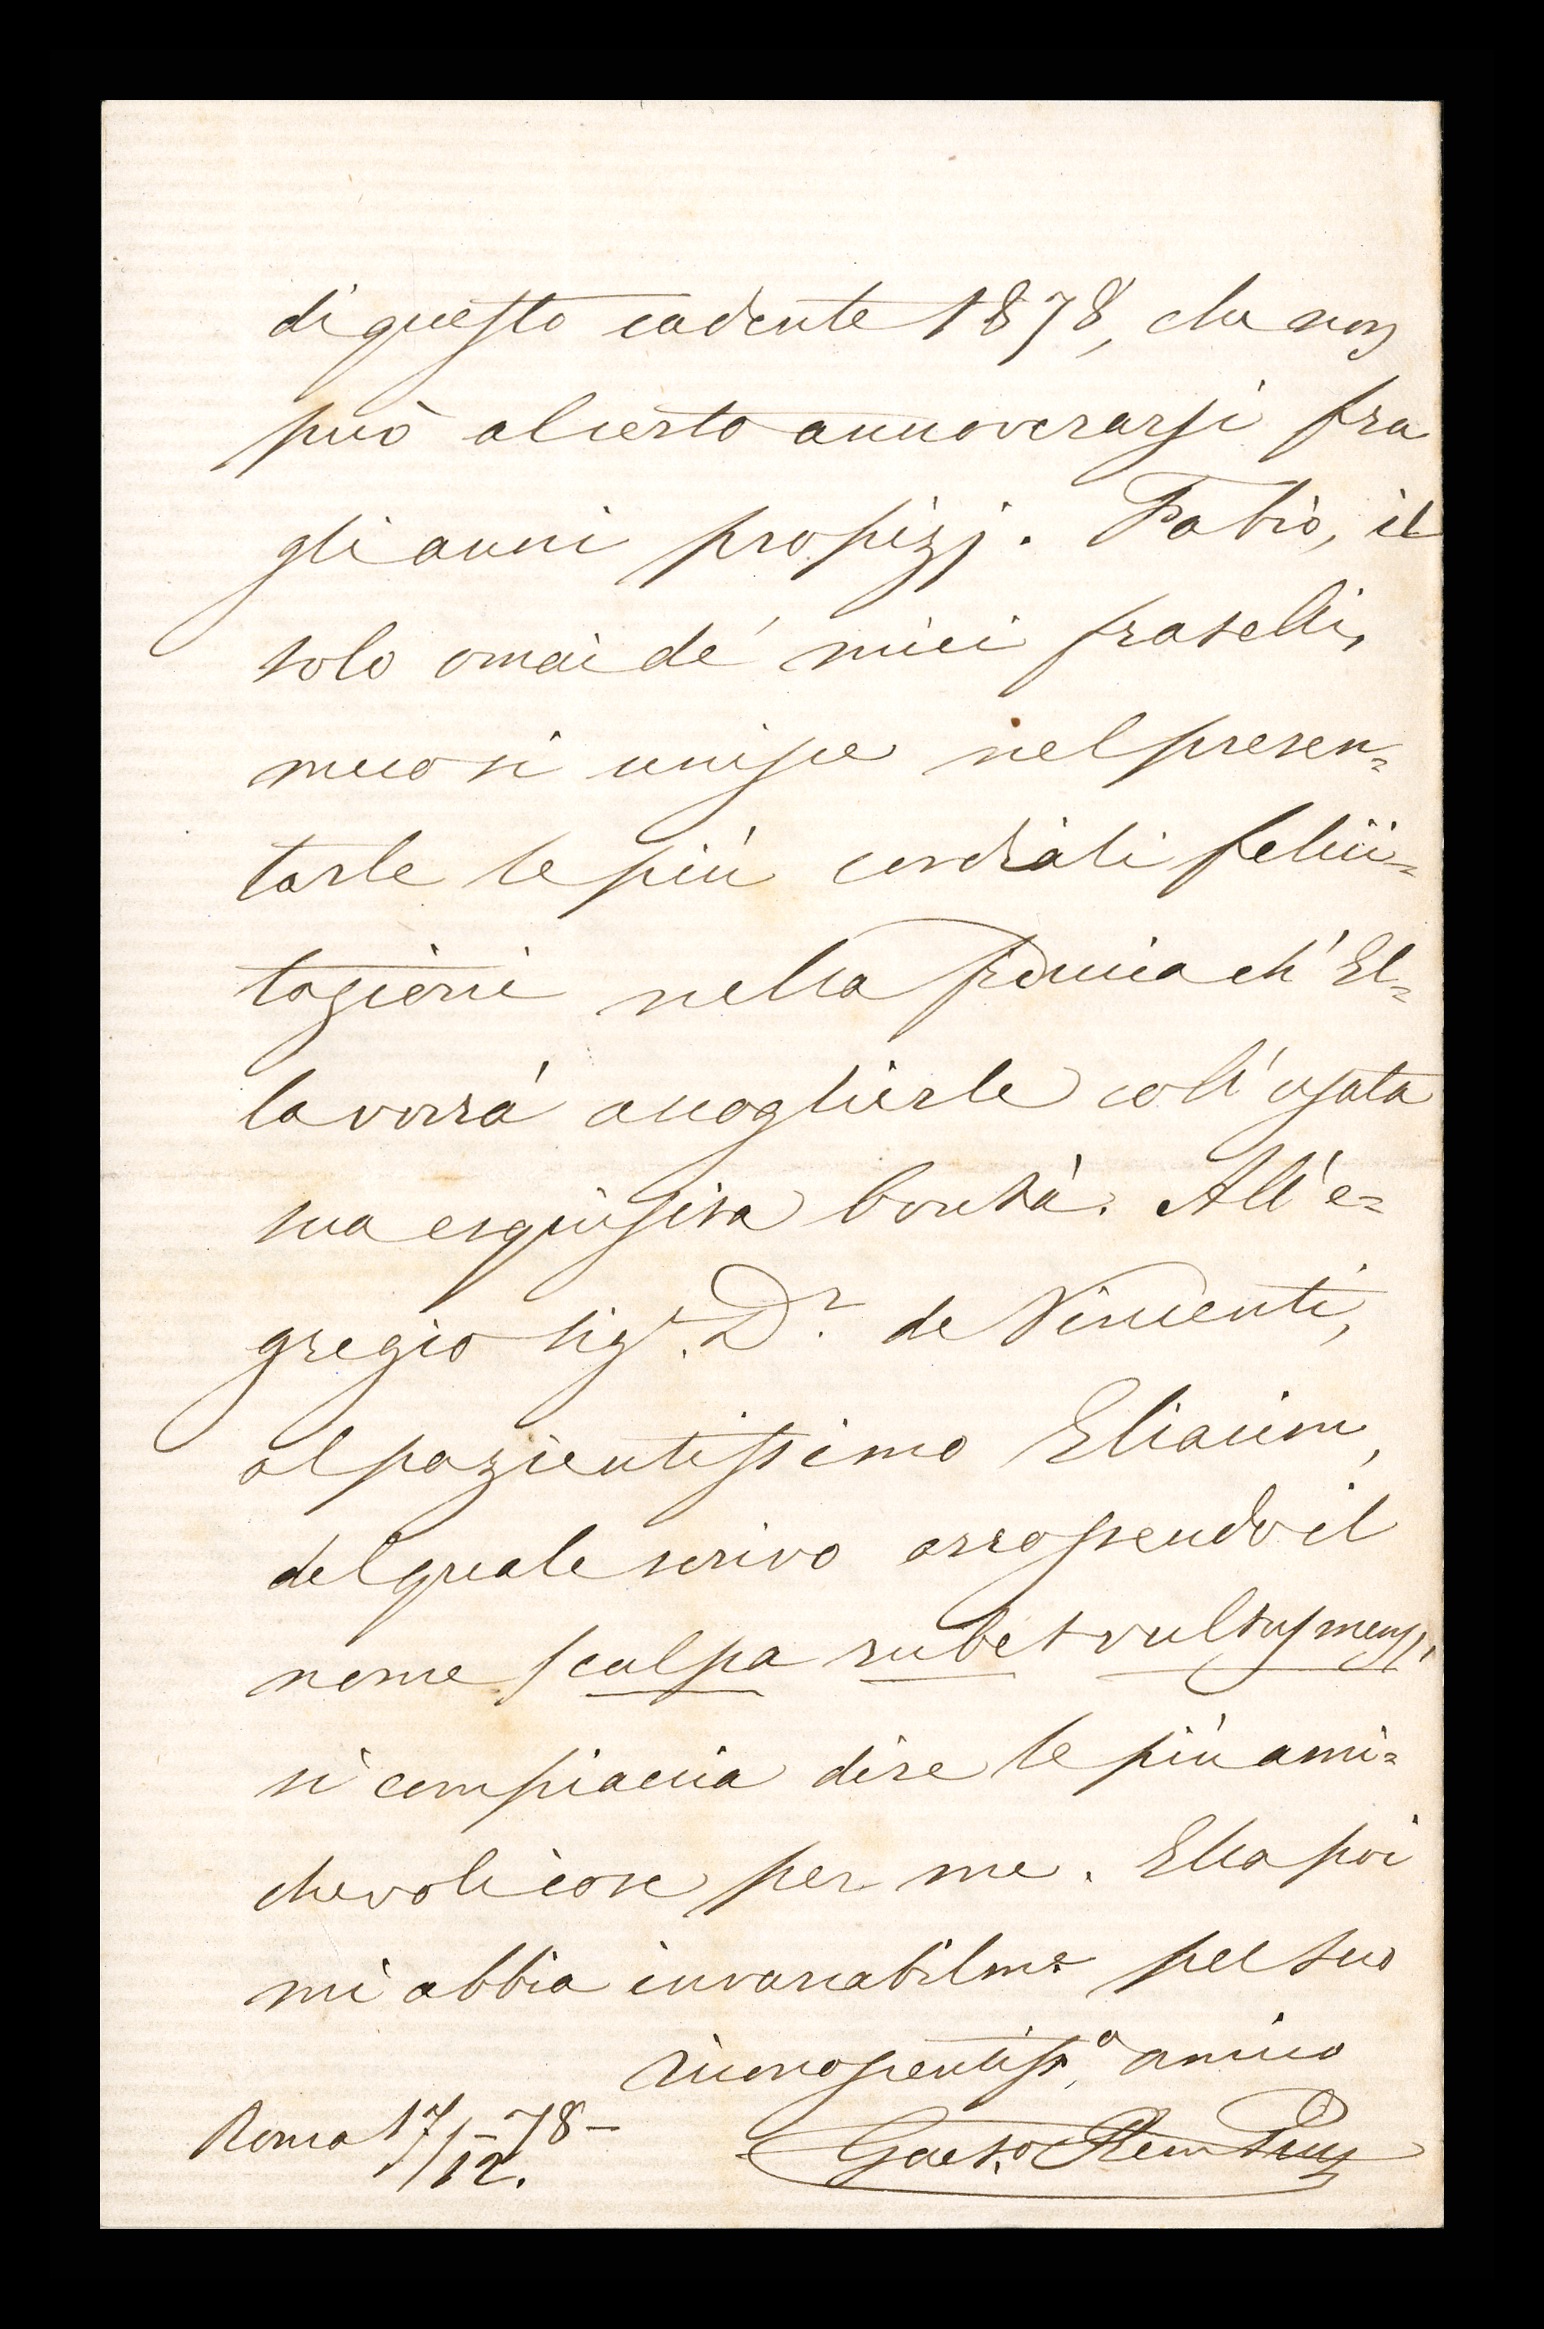 di questo cadente 1878, che non
può al certo annoverarsi fra
gli anni propizj. Fabio, il
solo omai de' miei fratelli,
meco si unisce nel presen=
tarle le più cordiali felici=
tazioni nella fiducia ch'El=
la vorrà accoglierle coll'usata
sua esquisita bontà. All'e=
gregio sigr. Dr. de Vincenti,
al pazientissimo Eliacim,
del quale scrivo arrossendo il
nome (culpa rubet vultus meus),
si compiaccia dire le più ami=
chevoli cose per me. Ella poi
mi abbia invariabilme pel suo
riconoscentisso. amico
Roma 17/12. - 78 -
Gaeto.